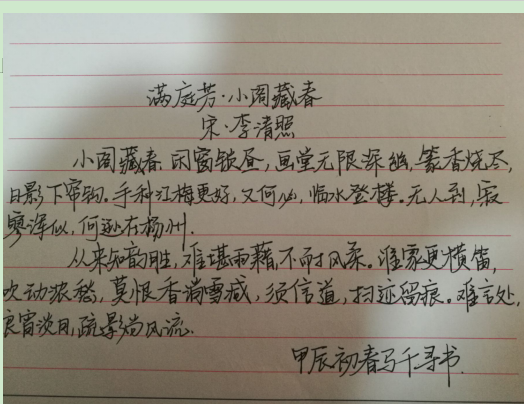 满庭芳·小阁藏春
宋·李清照
小阁藏春,闲窗锁昼,画堂无限深幽,篆香烧尽,
日影下帘钩。手种江梅更好,又何必,临水登楼。无人到,寂
寥浑似,何逊在扬州.
从来知韵胜,难堪雨藉,不耐风柔。谁家更横笛,
吹动浓愁,莫恨香消雪减,须信道,扫迹留痕。难言处,
良宵淡月,疏影尚风流.
甲辰初春马千寻书